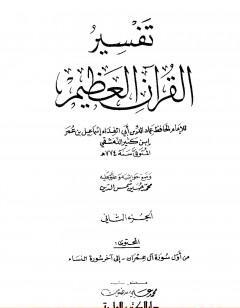 تفسير
القرآن العظيم
للإمام الحافظ عماد الدين أبي الفداء إسماعيل بن عمر
ابن كثير الدمشقي
المتوفى سنة ٧٧٤ هـ
وضع حواشيه وعلق عليه
محمد حسين شمس الدين
الجزء الثاني
المحتوى:
من أول سورة آل عمران - إلى آخر سورة النساء
دار الكتب العلمية